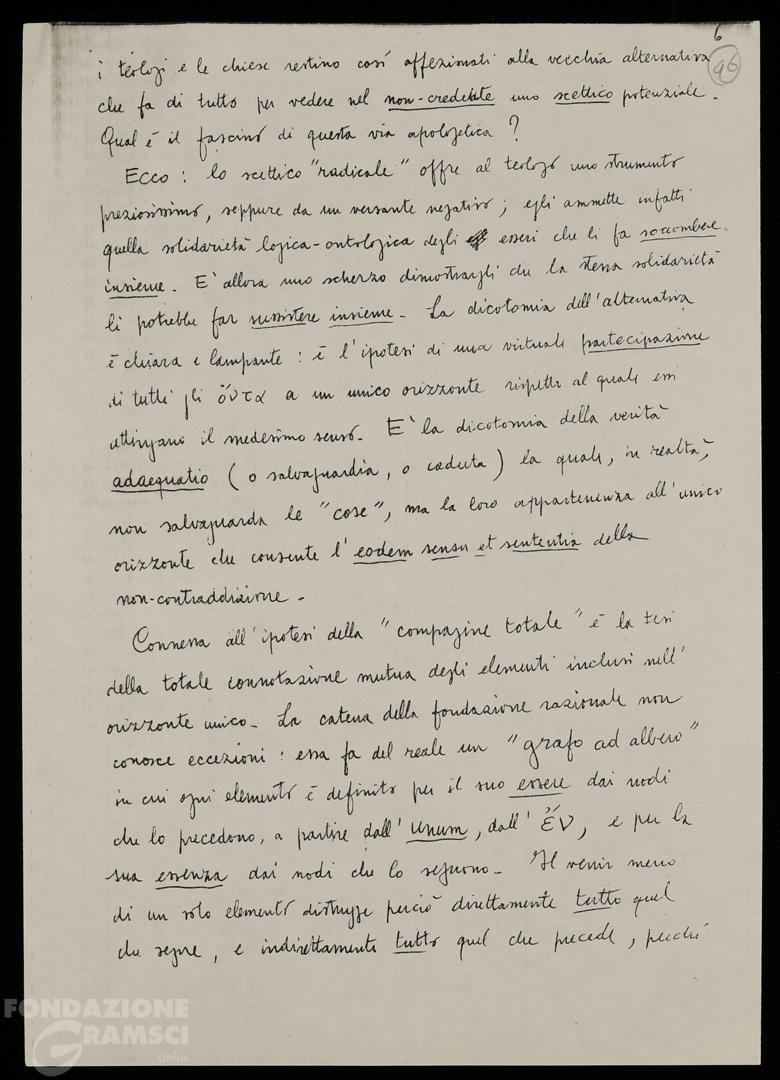 6
96
i teologi e le chiese restino così affezionati alla vecchia alternativa
che fa di tutto per vedere nel non-credente uno scettico potenziale.
Qual è il fascino di questa via apologetica?
Ecco: lo scettico "radicale" offre al teologo uno strumento
preziosissimo, seppure da un versante negativo; egli ammette infatti
quella solidarietà logica-ontologica degli esseri che li fa soccombere
insieme. E' allora uno scherzo dimostrargli che la stessa solidarietà
li potrebbe far sussistere insieme. La dicotomia dell'alternativa
è chiara e lampante: è l'ipotesi di una virtuale partecipazione
di tutti gli ὄντα a un unico orizzonte rispetto al quale essi
attingano il medesimo senso. E' la dicotomia della verità
adaequatio (o salvaguardia, o caduta) la quale, in realtà,
non salvaguarda le "cose", ma la loro appartenenza all'unico
orizzonte che consente l'eodem sensu et sententia della
non-contraddizione.
Connessa all'ipotesi della "compagine totale" è la tesi
della totale connotazione mutua degli elementi inclusi nell'
orizzonte unico. La catena della fondazione razionale non
conosce eccezioni: essa fa del reale un "grafo ad albero"
in cui ogni elemento è definito per il suo essere dai nodi
che lo precedono, a partire dall'Unum, dall'ἕν, e per la
sua essenza dai nodi che lo seguono. Il venir meno
di un solo elemento distrugge perciò direttamente tutto quel
che segue, e indirettamente tutto quel che precede, perché
FONDAZIONE
GRAMSCI
onlus